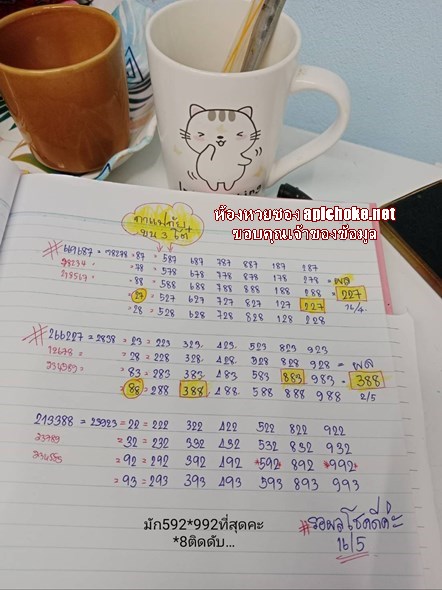 ห้องหวยซอง aplchoke.net
ขอบคุณเจ้าของข้อมูล
บน 3 ได้
669687 = 78278 = 87 = 587 687 787 887 187 287
= 78 = 578 678 778 878 178 278 = ผล
= 88 = 588 688 788 888 188 288 = 227
= 27 = 527 627 727 827 127 227 16/4
= 28 = 528 628 728 828 128 228
266227 = 2838 = 23 = 223 323 423 523 823 923
12678 = 28 = 228 328 428 528 828 928 = ผล
= 83 = 283 383 483 583 883 983 = 388
= 88 = 288 388 488 588 888 988 2/5
213388 = 23923 = 22 = 222 322 422 522 822 922
= 32 = 232 332 432 532 832 932
= 92 = 292 392 492 *592 892 *992*
= 93 = 293 393 493 593 893 993
มัก592*992ที่สุดคะ
*8ติดดับ...
#รอผลโชคดีค่ะ
16/5